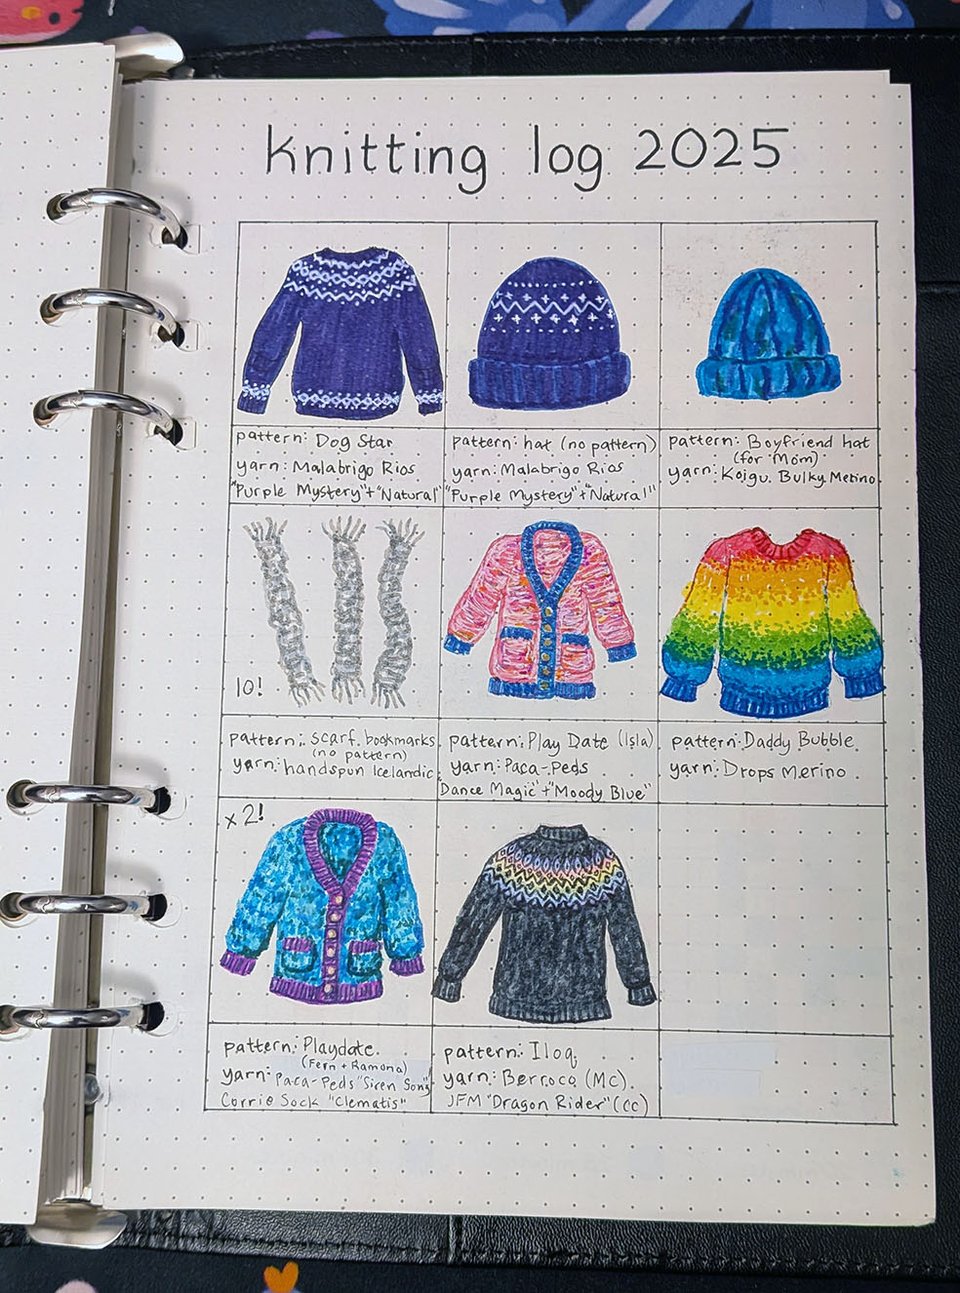 knitting log 2025
pattern: Dog Star
yarn: Malabrigo Rios
"Purple Mystery" + "Natural"
pattern: hat (no pattern)
yarn: Malabrigo Rios
"Purple Mystery" + "Natural"
pattern: Boyfriend hat
(for Mom)
yarn: Koigu Bulky Merino
10!
pattern: scarf bookmarks
(no pattern)
yarn: handspun Icelandic
pattern: Play Date (Isla)
yarn: Paca-Peds
Dance Magic" + "Moody Blue"
pattern: Daddy Bubble
yarn: Drops Merino
x2!
pattern: Playdate
(Fern + Ramona)
yarn: Paca-Peds "Siren Song"
Corrie Sock "Clematis"
pattern: Iloq
yarn: Berroco (MC)
JFM "Dragon Rider" (CC)